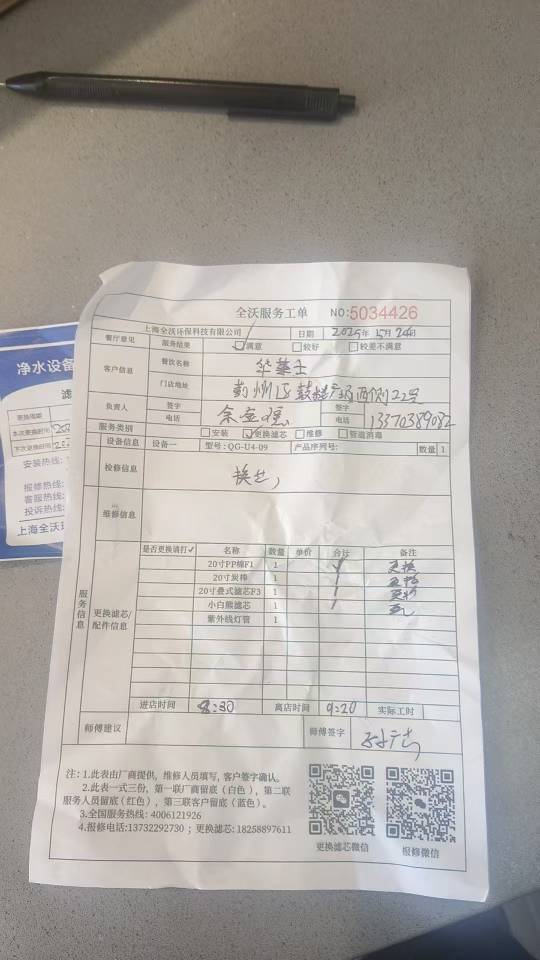 全沃服务工单 NO:5034426
上海全沃环保科技有限公司 日期 2025年5月24日
餐厅意见 服务结果 ☑满意 □较好 □较差不满意
客户信息 餐饮名称 华莱士
门店地址 鼓楼广场西侧22号
负责人 签字 签字
电话 电话 13370389082
服务类别 □安装 ☑更换滤芯 □维修 □管道消毒
设备信息 设备一 型号:QG-U4-09 产品序列号: 数量 1
检修信息 换芯
维修信息
服务信息
更换滤芯/配件信息
是否更换请打✓ 名称 数量 单价 合计 备注
20寸PP棉F1 1 更换
20寸炭棒 1 更换
20寸叠式滤芯F3 1 更换
小白熊滤芯 1
紫外线灯管 1
进店时间 8:30 离店时间 9:20 实际工时
师傅建议 师傅签字
注:1.此表由厂商提供,维修人员填写,客户签字确认。
2.此表一式三份,第一联厂商留底(白色),第二联
服务人员留底(红色),第三联客户留底(蓝色)。
3.全国服务热线:4006121926
4.报修电话:13732292730;更换滤芯:18258897611
更换滤芯微信 报修微信
净水设备
滤
更换周期
本次更换时间 202
下次更换时间
安装热线:
报修热线:
客服热线:
投诉热线:
上海全沃环